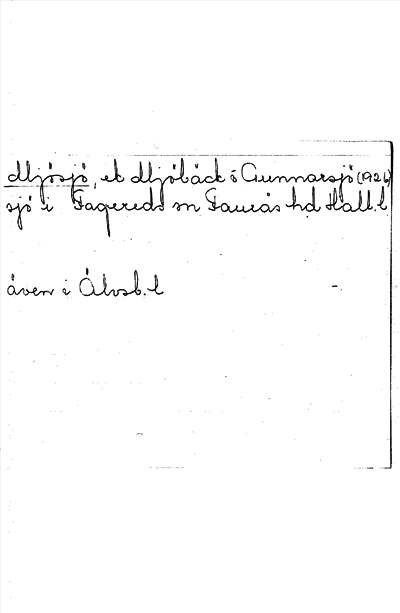 Mjösjö, ek Mjöbäck ö Gunnarsjö (1926)
sjö i Fagereds sn Faurås hd Hall. l
även i Älvsb. l